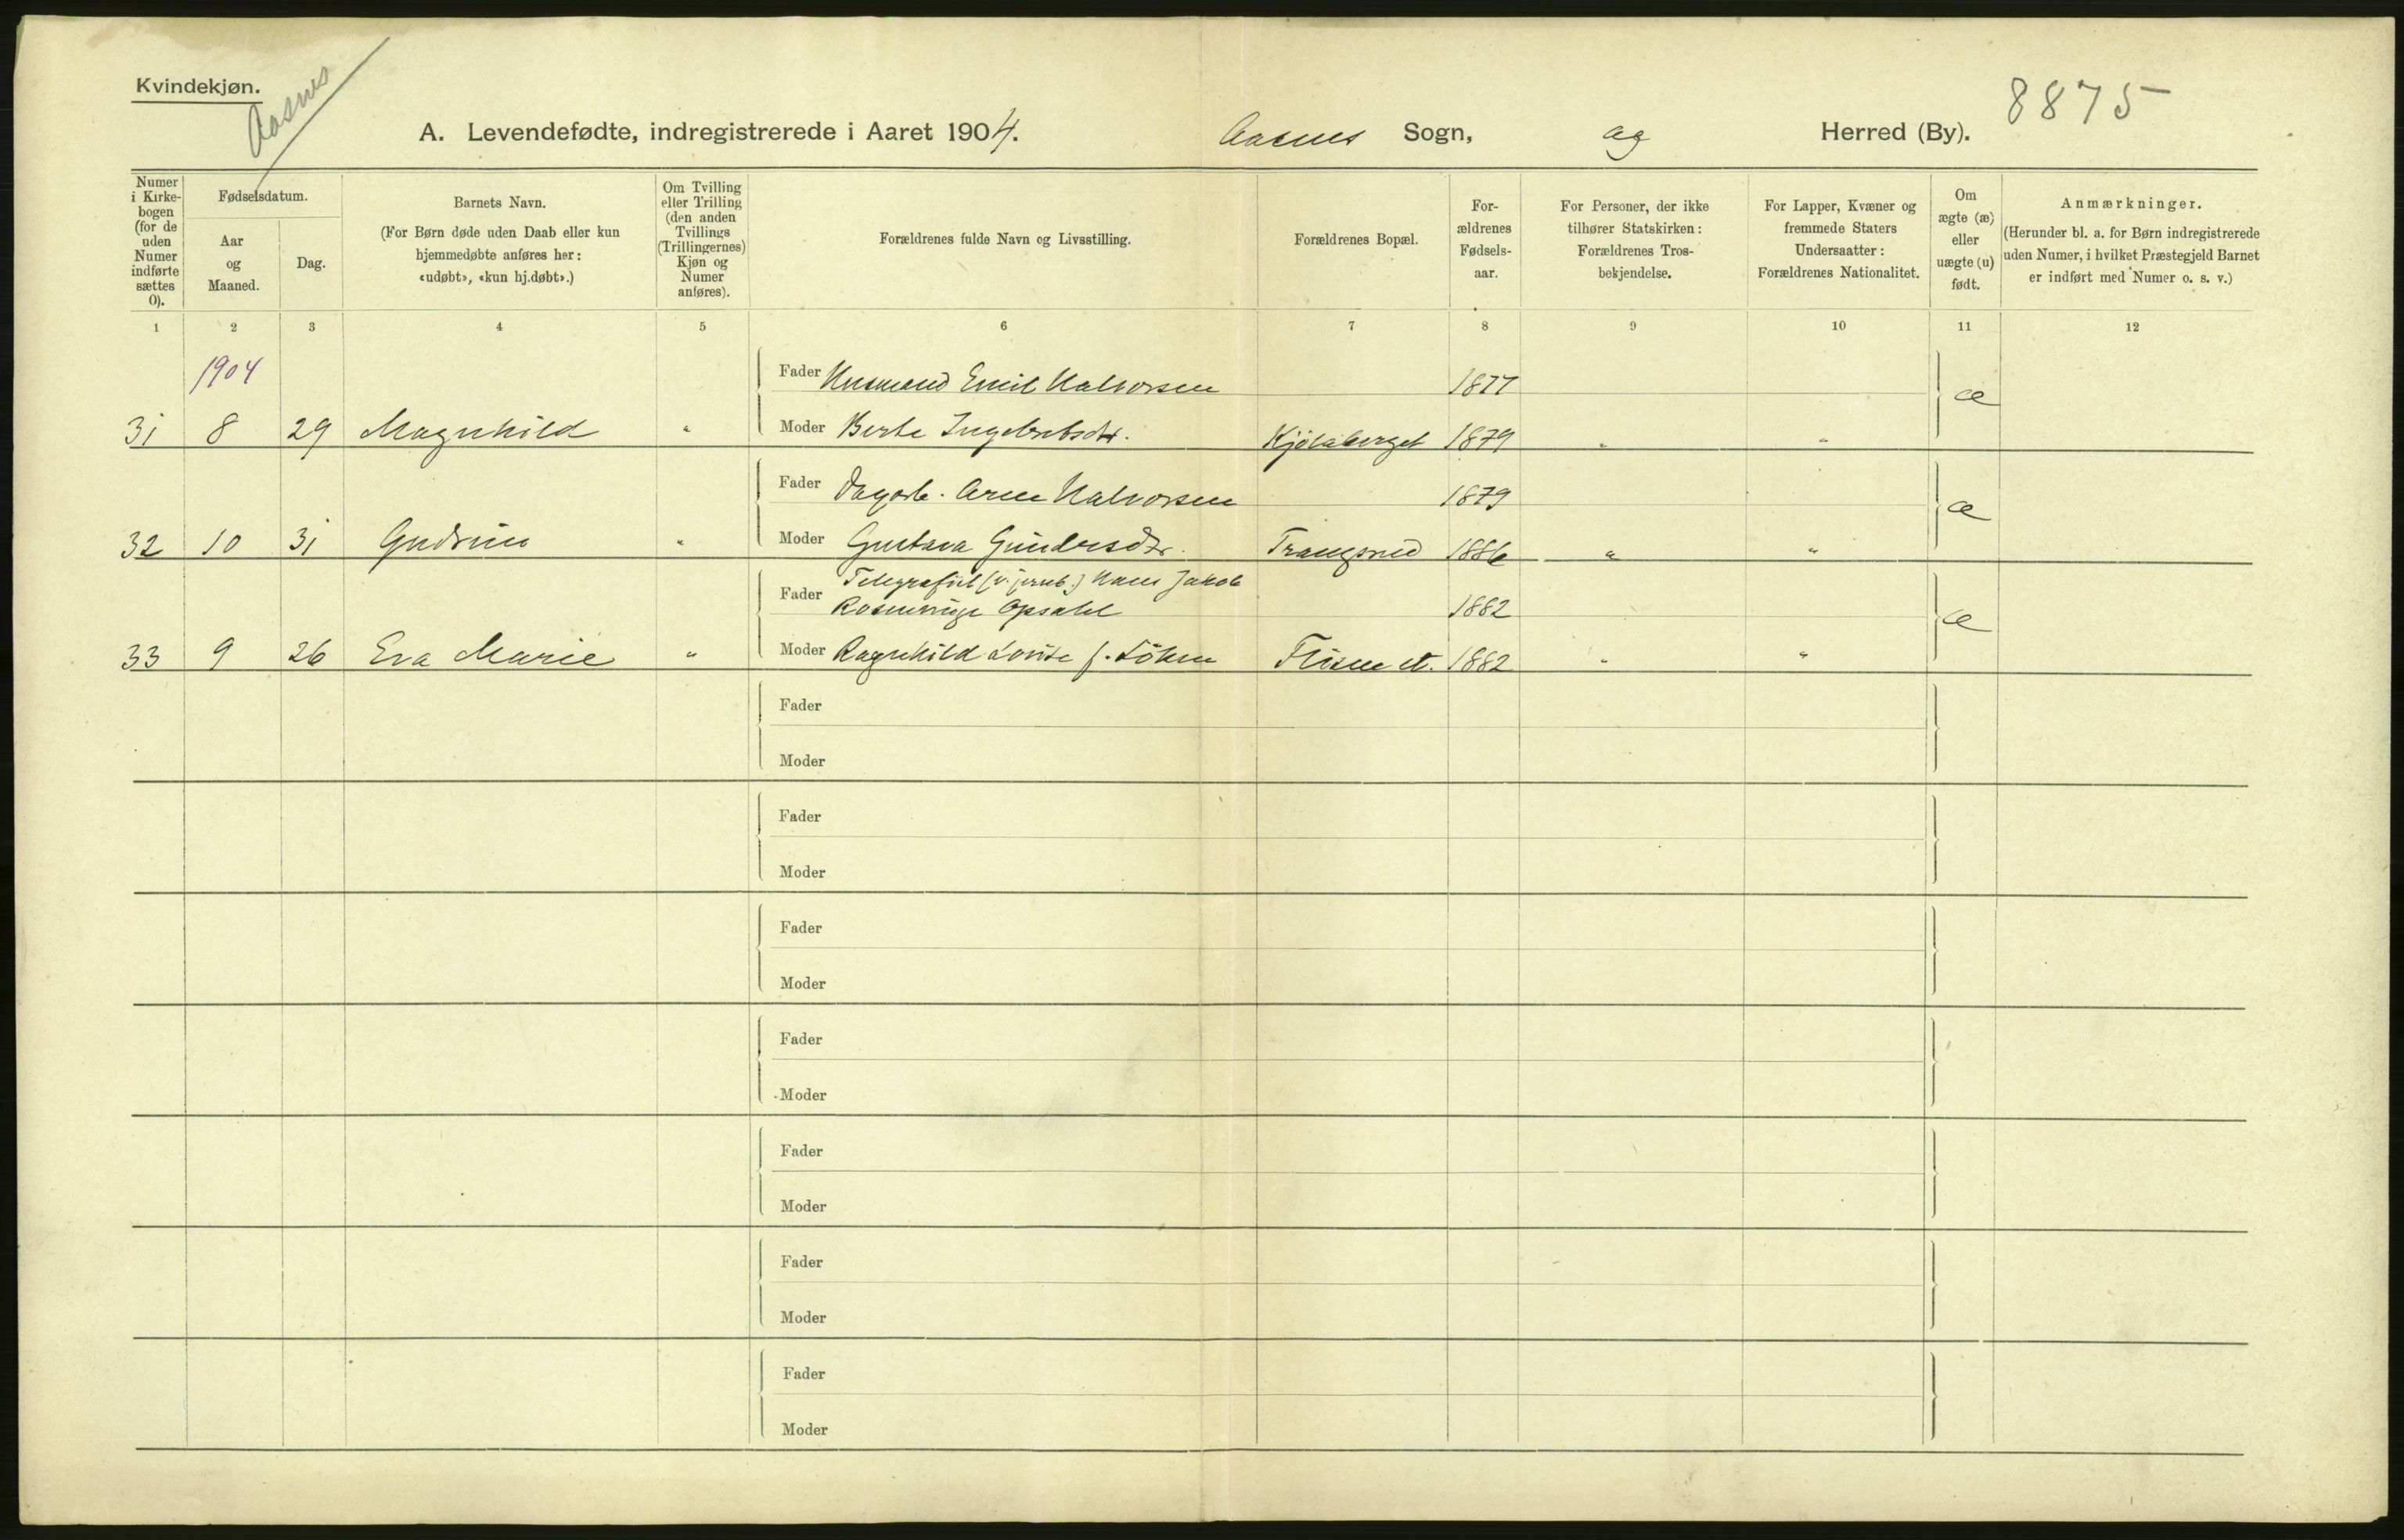 Kvindekjøn.
Aasnes
8875
A. Levendefødte, indregistrerede i Aaret 1904. Aasnes Sogn, ag Herred (By).
Numer i Kirke- bogen (for de uden Numer indførte sættes 0).
Fødselsdatum.
Aar og Maaned.
Dag.
Barnets Navn.
(For Børn døde uden Daab eller kun
hjemmedøbte anføres her:
«udøbt», «kun hj.døbt».)
Om Tvilling eller Trilling (den anden Tvillings (Trillingernes) Kjøn og Numer anføres).
Forældrenes fulde Navn og Livsstilling.
Forældrenes Bopæl.
For- ældrenes Fødsels- aar.
For Personer, der ikke
tilhører Statskirken:
Forældrenes Tros-
bekjendelse.
For Lapper, Kvæner og
fremmede Staters
Undersaatter:
Forældrenes Nationalitet.
Om ægte (æ) eller uægte (u) født.
Anmærkninger.
(Herunder bl. a. for Børn indregistrerede
uden Numer, i hvilket Præstegjeld Barnet
er indført med Numer o. s. v.)
1 2 3 4 5 6 7 8 9 10 11 12
1904
Fader Husmand Emil Halvorsen 1877 æ
31 8 29 Magnhild " Moder Berte Ingebrbsdtr. Kjölaberget 1879 " "
Fader Dagarb. Arne Halvorsen 1879 æ
32 10 31 Gudrun " Moder Gustava Gundersdtr. Trangsned 1886 " "
Telegrafist (v. jernb.) Hans Jakob
Fader Rosenvinge Opsahl 1882 æ
33 9 26 Eva Marie " Moder Ragnhild Lovise f. Löken Flisen st. 1882 " "
Fader
Moder
Fader
Moder
Fader
Moder
Fader
Moder
Fader
Moder
Fader
Moder
Fader
Moder